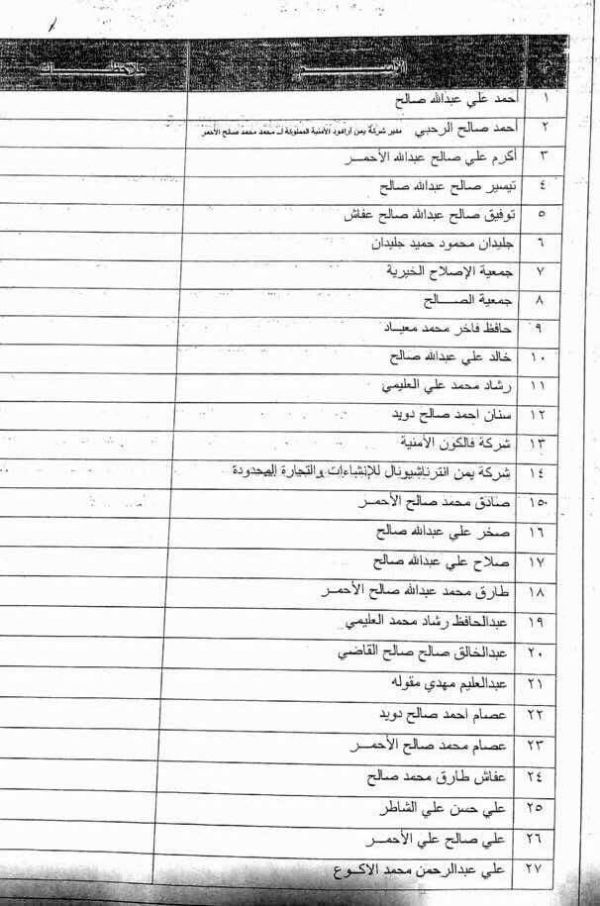 م الاســـــم ملاحظـــات
١ أحمد علي عبدالله صالح
٢ أحمد صالح الرحبي مدير شركة يمن ارمورد الأمنية المملوكة لــ محمد محمد صالح الأحمر
٣ أكرم علي صالح عبدالله الأحمــر
٤ تيسير صالح عبدالله صالح
٥ توفيق صالح عبدالله صالح عفاش
٦ جليدان محمود حميد جليدان
٧ جمعية الإصلاح الخيرية
٨ جمعية الصـــالح
٩ حافظ فاخر محمد معيـاد
١٠ خالد علي عبدالله صالح
١١ رشاد محمد علي العليمي
١٢ سنان احمد صالح دويد
١٣ شركة فالكون الأمنية
١٤ شركة يمن انترناشيونال للإنشاءات والتجارة المحدودة
١٥ صادق محمد صالح الأحمــر
١٦ صخر علي عبدالله صالح
١٧ صلاح علي عبدالله صالح
١٨ طارق محمد عبدالله صالح الأحمــر
١٩ عبدالحافظ رشاد محمد العليمي
٢٠ عبدالخالق صالح صالح القاضي
٢١ عبدالعليم مهدي مقوله
٢٢ عصام احمد صالح دويد
٢٣ عصام محمد صالح الأحمــر
٢٤ عفاش طارق محمد صالح
٢٥ علي حسن علي الشاطر
٢٦ علي صالح علي الأحمــر
٢٧ علي عبدالرحمن محمد الاكــوع